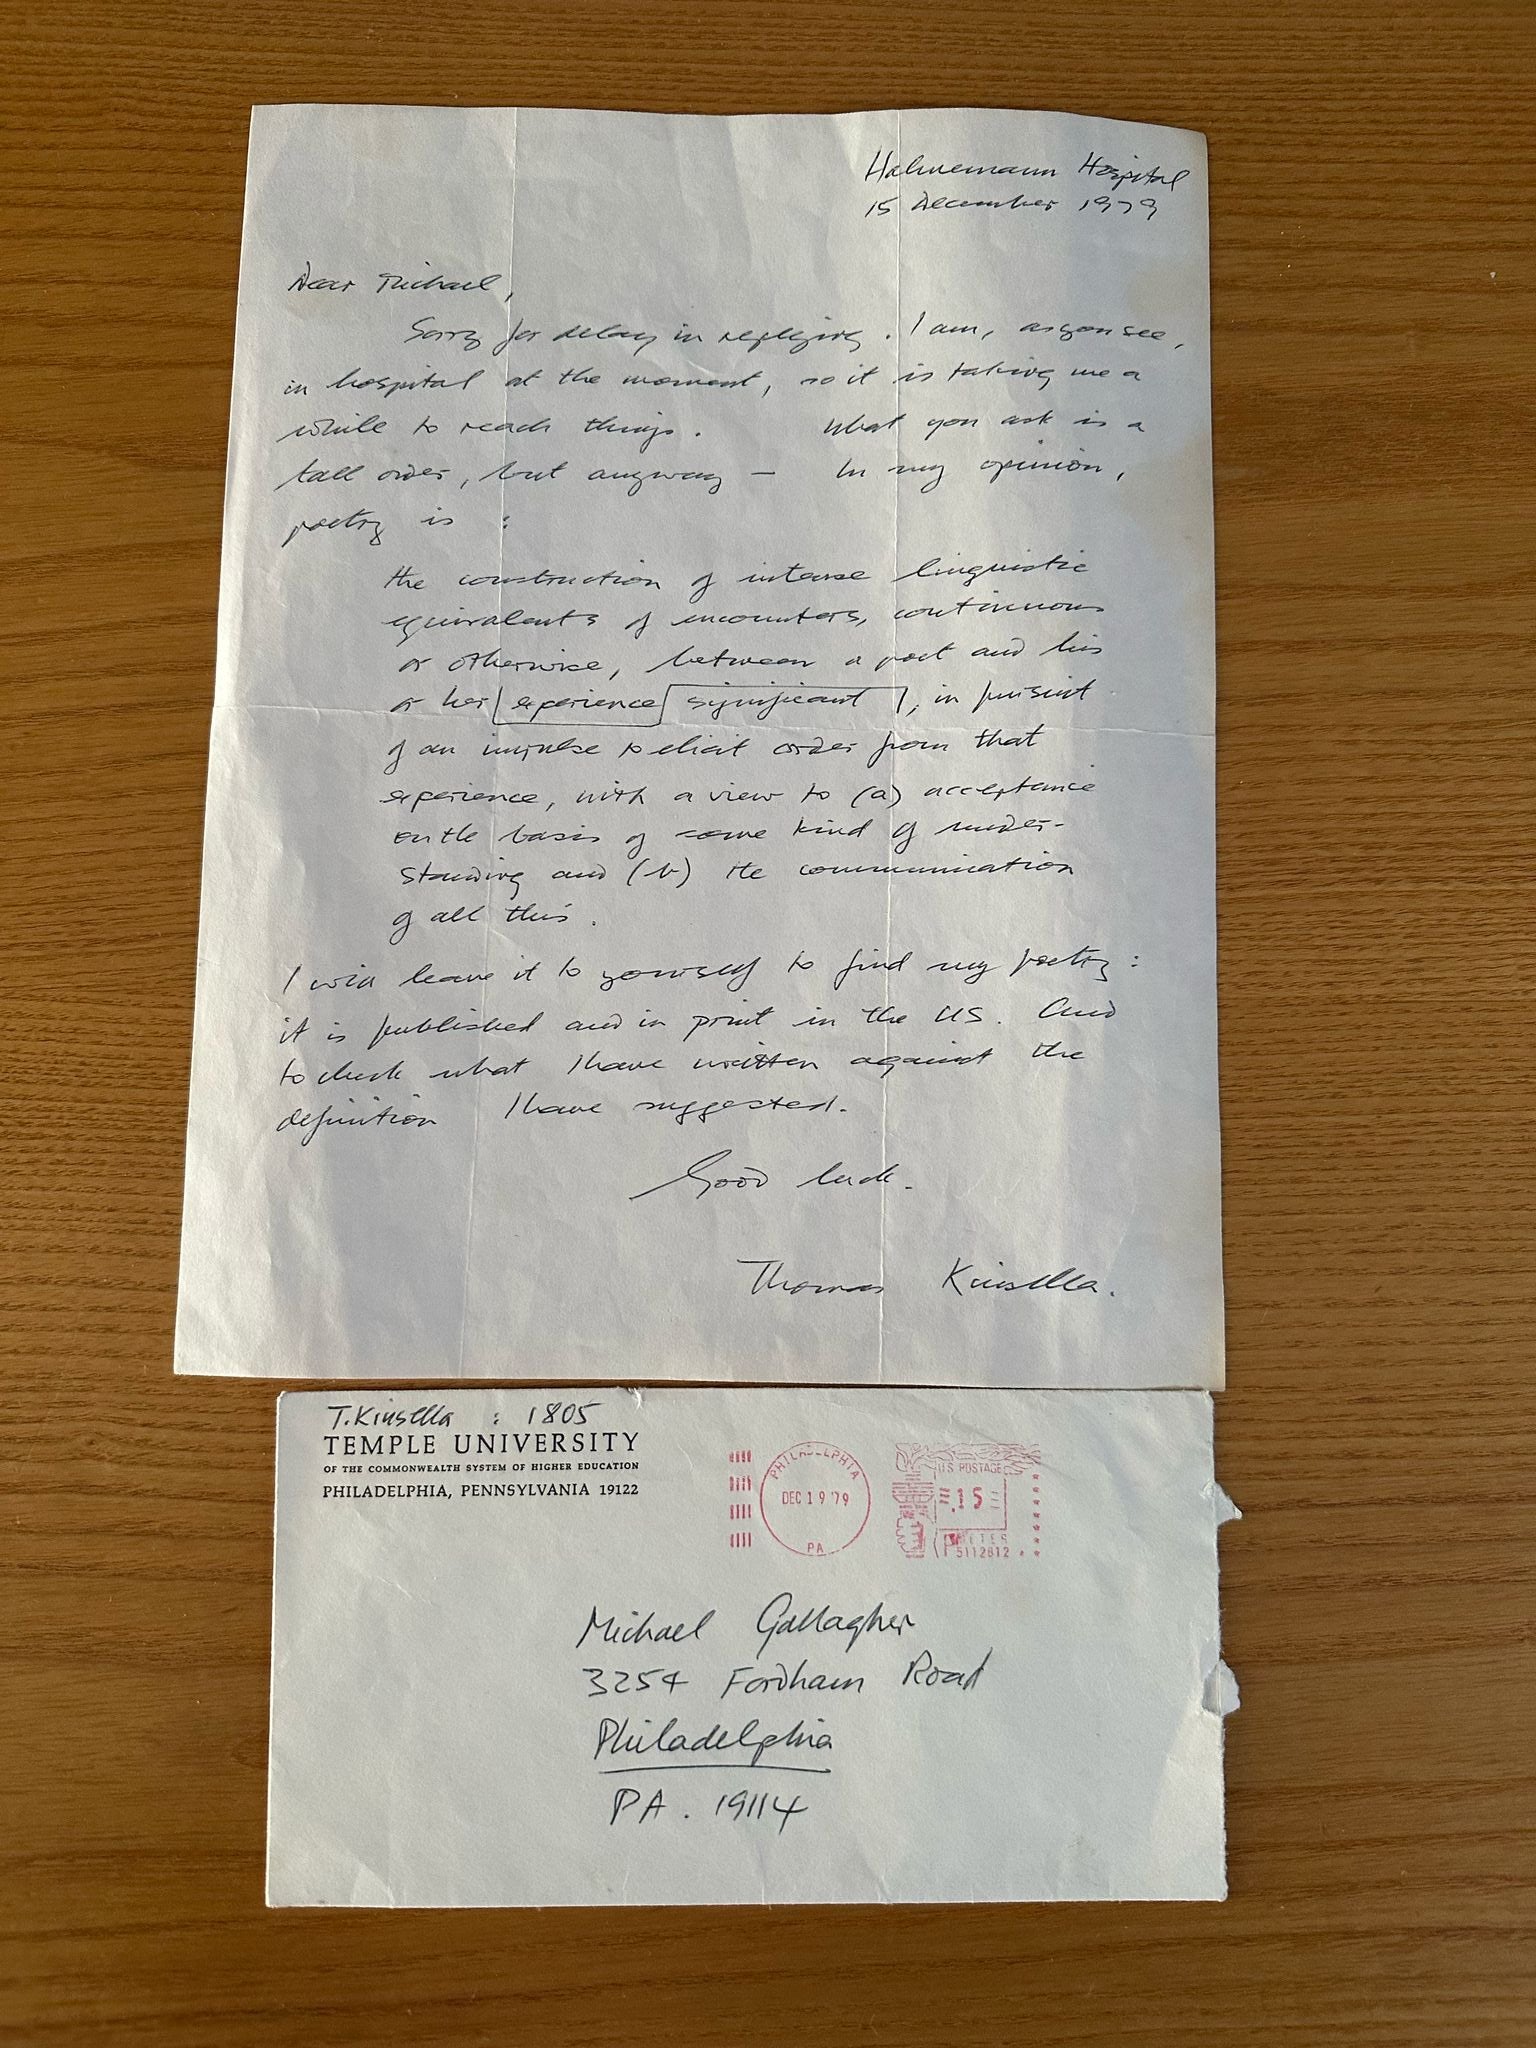 Hahnemann Hospital
15 December 1979
Dear Michael,
Sorry for delay in replying. I am, as you see,
in hospital at the moment, so it is taking me a
while to reach things. What you ask is a
tall order, but anyway — In my opinion,
poetry is :
the construction of intense linguistic
equivalents of encounters, continuous
or otherwise, between a poet and his
or her experience significant, in pursuit
of an impulse to elicit order from that
experience, with a view to (a) acceptance
on the basis of some kind of under-
standing and (b) the communication
of all this.
I will leave it to yourself to find my poetry :
it is published and in print in the US. And
to check what I have written against the
definition I have suggested.
Good luck.
Thomas Kinsella.
T. Kinsella : 1805
TEMPLE UNIVERSITY
OF THE COMMONWEALTH SYSTEM OF HIGHER EDUCATION
PHILADELPHIA, PENNSYLVANIA 19122
PHILADELPHIA
DEC 19 '79
PA
U.S. POSTAGE
.15
METER
5112812
Michael Gallagher
3254 Fordham Road
Philadelphia
PA. 19114